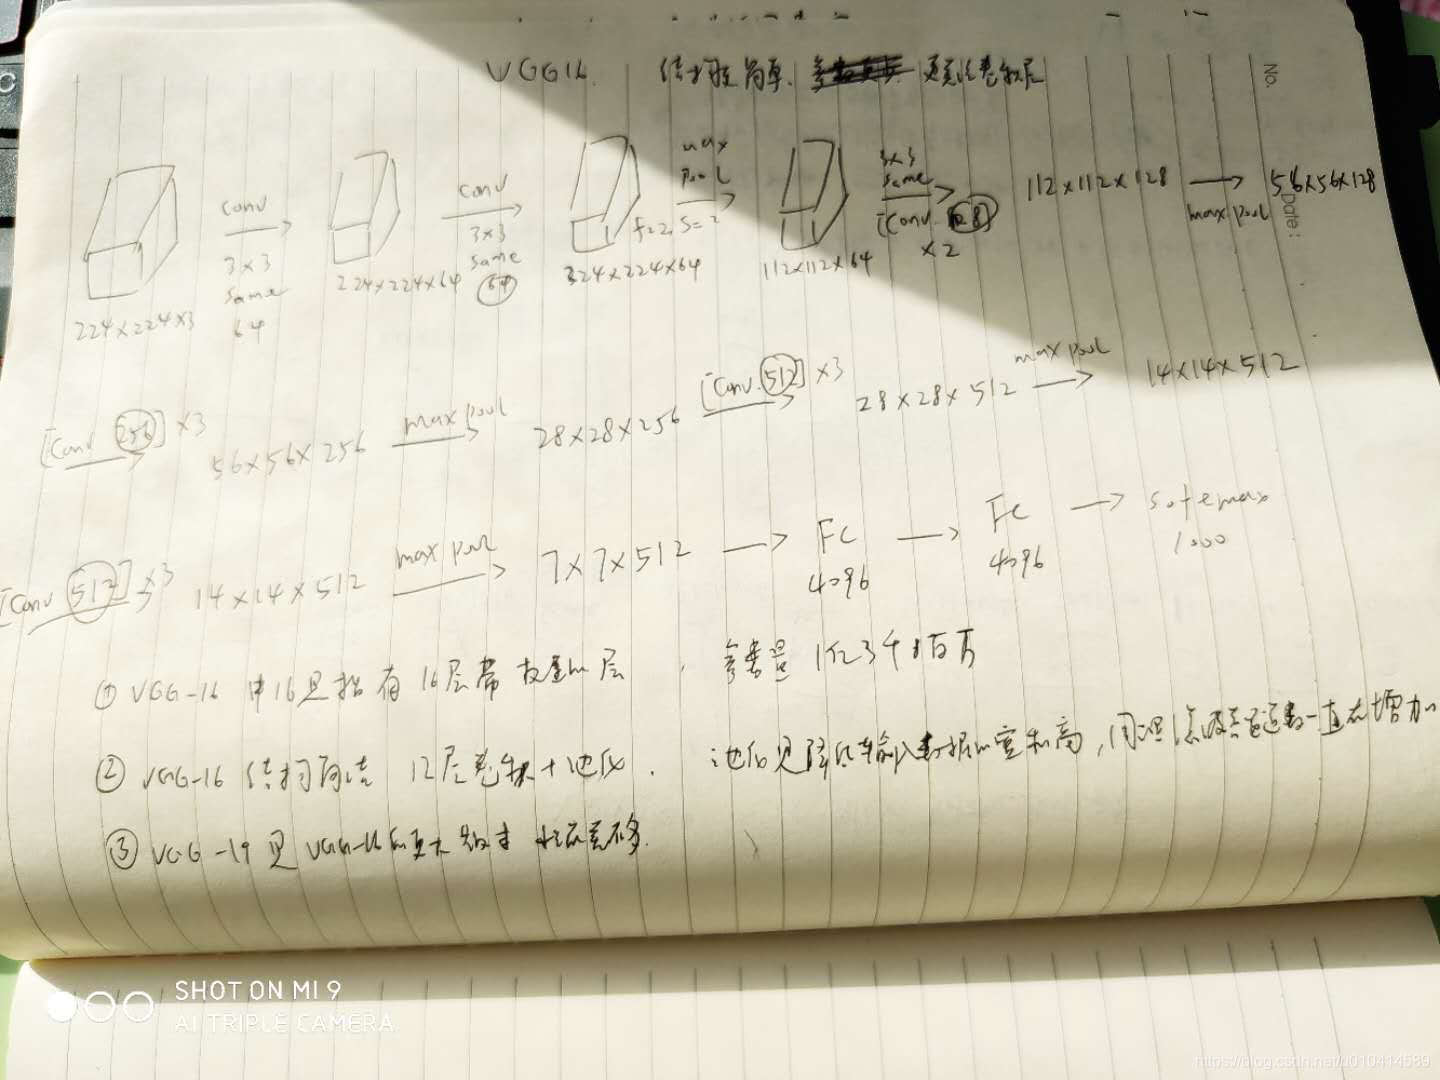 VGG16. 结构简单. 更关注卷积层
Conv 3×3 same 64
Conv 3×3 same 64
max pool f=2, s=2
3×3 same [Conv 128] ×2
112×112×128 max pool 56×56×128
224×224×3 224×224×64 324×224×64 112×112×64
[Conv 256] ×3 56×56×256 max pool 28×28×256 [Conv. 512] ×3 28×28×512 max pool 14×14×512
[Conv 512] ×3 14×14×512 max pool 7×7×512 FC 4096 FC 4096 softemax 1000
① VGG-16 中16是指有16层带权重的层, 参数量 1亿3千8百万
② VGG-16 结构 卷积+池化. 池化是降低输入数据的宽和高, 一直在增加
③ VGG-19 是 VGG-16的更大版本 差不多.
No.
Date:
SHOT ON MI 9
AI TRIPLE CAMERA
https://blog.csdn.net/u010414589